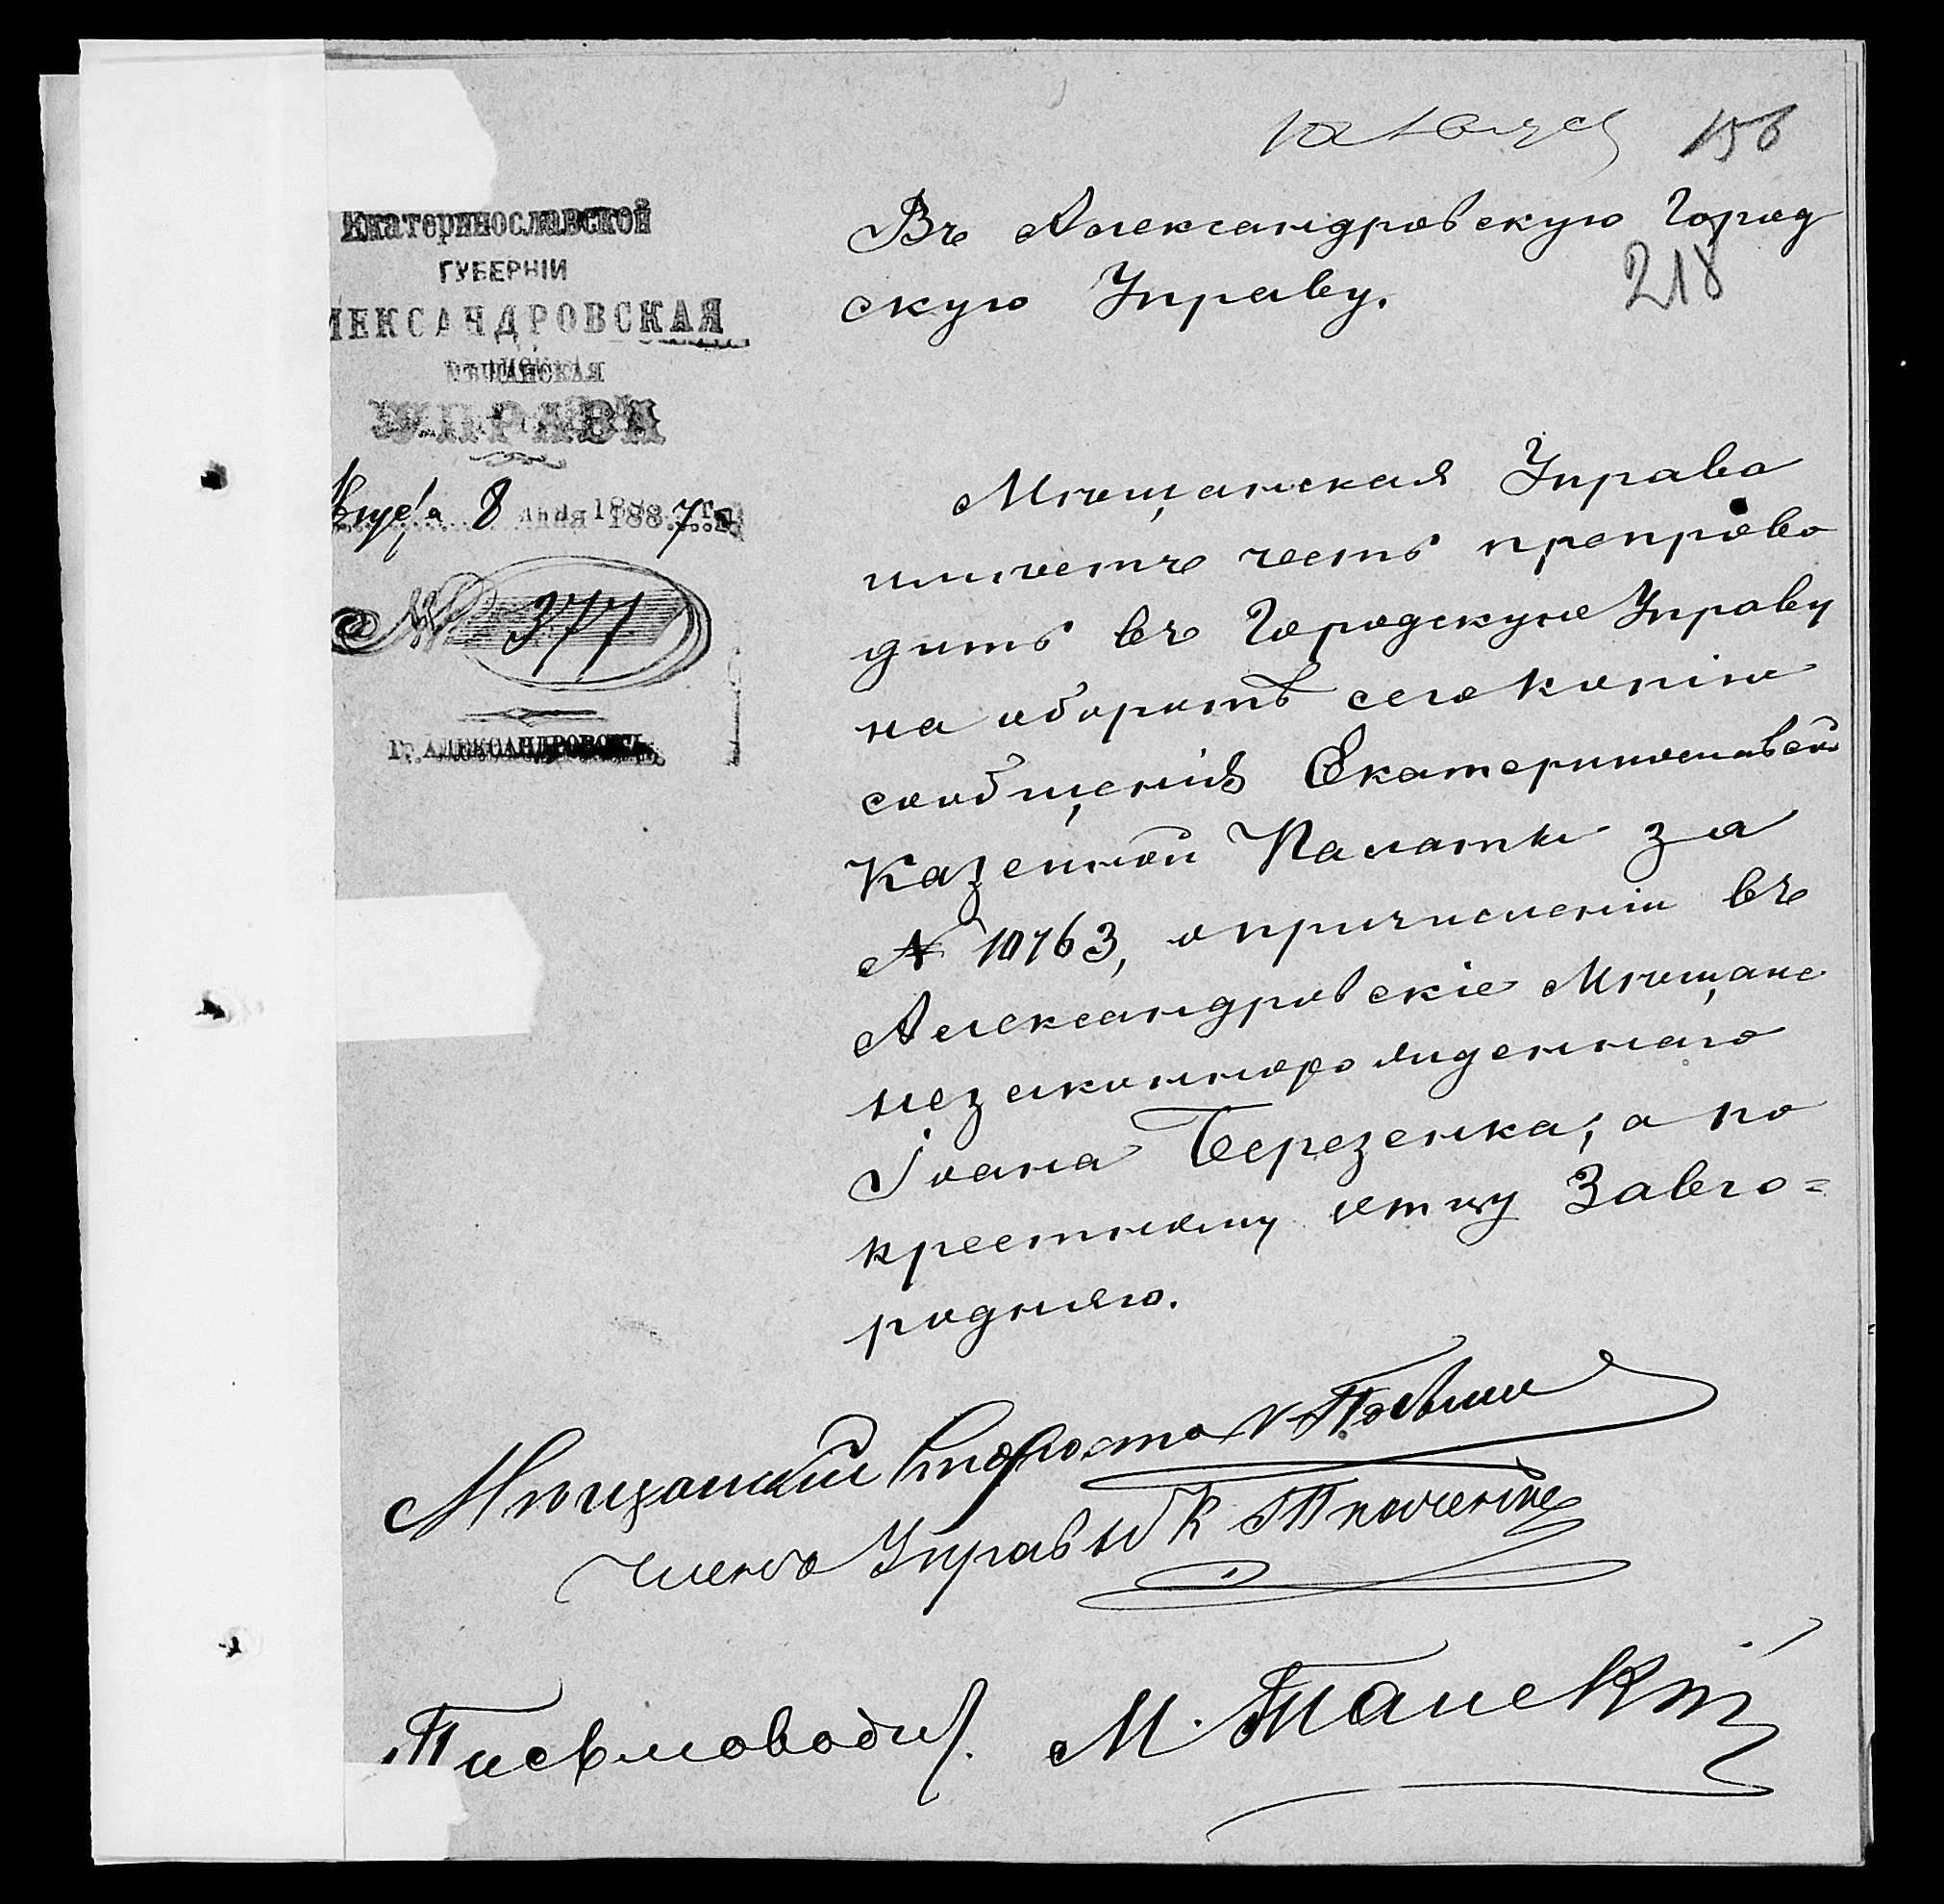 10 Авгус
156
Екатеринославской
ГУБЕРНІИ
ЛЕКСАНДРОВСКАЯ
МѢЩАНСКАЯ
УПРАВА
8 дня 1887 г.
№ 377
Г. АЛЕКСАНДРОВСКЪ
Въ Александровскую Город
скую Управу.
218
Мѣщанская Управа
имѣетъ честь препрово
дить въ Городскую Управу
на оборотѣ сего копію
сообщенія Екатеринославской
Казенной Палаты за
№ 10763, о причисленіи въ
Александровскіе Мѣщане
незаконнорожденнаго
Іоана Березенка, а по
крестному отцу Завго=
родняго.
Мѣщанскій Староста
Членъ Управы К Ткаченко
Письмовод. М. Танскій